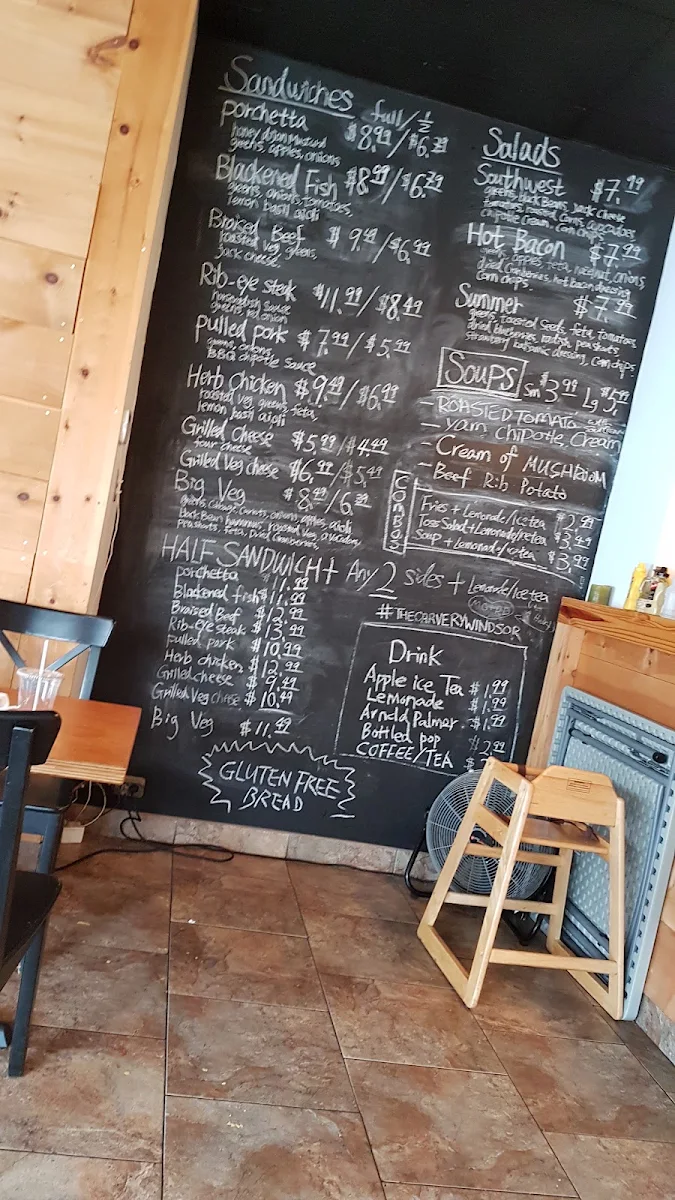 Sandwiches full/½
porchetta $8.99/$6.39
honey dijon mustard
greens, apples, onions
Blackened Fish $8.99/$6.79
greens, onions, tomatoes,
lemon basil aioli
Braised Beef $9.49/$6.99
roasted veg, greens,
jack cheese.
Rib-eye steak $11.99/$8.49
horseradish sauce
greens, red onion
pulled pork $7.99/$5.99
greens, onions,
BBQ chipotle sauce
Herb Chicken $9.49/$6.99
roasted veg, greens, feta,
lemon, basil aioli
Grilled Cheese $5.99/$4.49
four cheese
Grilled Veg cheese $6.99/$5.49
Big Veg $8.49/6.39
greens, cabbage, carrots, onions, apples, aioli
black Bean hummus, roasted Veg, avocados,
pea shoots, feta, Dried Cranberries.
HALF SANDWICH + Any 2 sides + Lemonade/Ice tea
porchetta $11.99
Blackened fish $11.99
Braised Beef $12.99
Rib-eye steak $13.99
pulled pork $10.99
Herb chicken $12.99
Grilled cheese $9.49
Grilled Veg cheese $10.49
Big Veg $11.49
GLUTEN FREE
BREAD
Salads
Southwest $7.99
greens, black Beans, Jack Cheese
tomatoes, roasted Corn, avocadoes
chipotle cream, corn chips
Hot Bacon $7.99
greens, apples, feta, hazelnut, onions
dried cranberries, hot bacon dressing
Corn chips,
Summer $7.99
greens, toasted seeds, feta, tomatoes,
dried blueberries, radish, pea shoots
strawberry balsamic dressing, Corn chips
Soups Sm $3.99 Lg $5.99
- ROASTED TOMATO
- yam Chipotle, Cream
- Cream of MUSHROOM
- Beef Rib Potato
COMBOS
Fries + Lemonade/Ice tea $2.99
Toss Salad + Lemonade/Ice tea $3.49
Soup + Lemonade/ice tea $3.99
#THECARVERYWINDSOR
Drink
Apple ice Tea $1.99
Lemonade $1.99
Arnold Palmer. $1.99
Bottled pop 2.99
COFFEE/TEA $